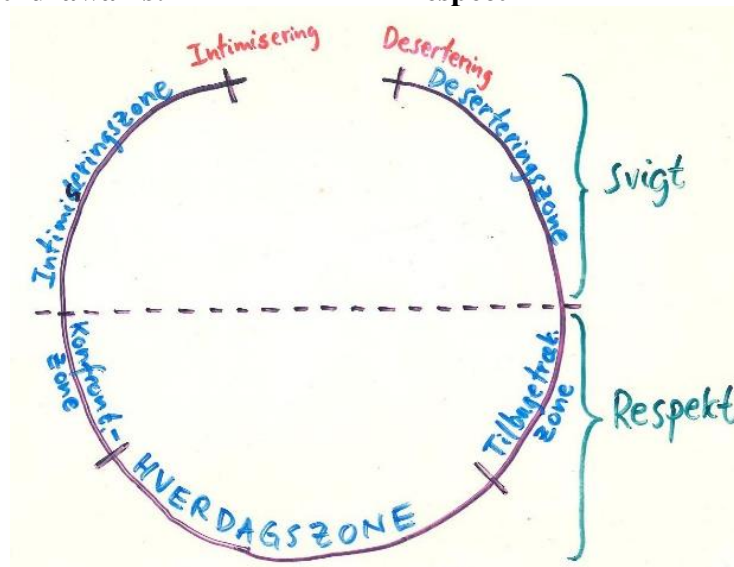 Intimisering
Desertering
Intimiseringszone
Deserteringszone
Svigt
Konfront.-
zone
Tilbagetræk.
zone
Respekt
HVERDAGSZONE